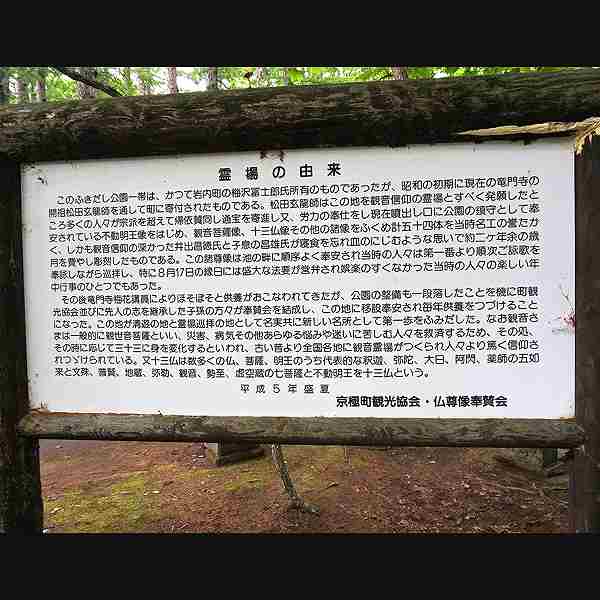 霊場の由来
このふきだし公園一帯は、かつて岩内町の梅沢富士郎氏所有のものであったが、昭和の初期に現在の竜門寺の
開祖松田玄龍師を通して町に寄付されたものである。松田玄龍師はこの地を観音信仰の霊場とすべく発願したと
ころ多くの人々が宗派を超えて帰依賛同し通宝を寄進し又、労力の奉仕をし現在噴出し口に公園の鎮守として奉
安されている不動明王像をはじめ、観音菩薩像、十三仏像その他の諸像をふくめ計五十四体を当時名工の誉たか
く、しかも観音信仰の深かった井出昌徳氏と子息の昌雄氏が寝食を忘れ血のにじむような思いで約二ヶ年余の歳
月を費やし彫刻したものである。この諸尊像は池の畔に順序よく奉安され当時の人々は第一番より順次ご詠歌を
奉詠しながら巡拝し、特に8月17日の縁日には盛大な法要が営弁され娯楽のすくなかった当時の人々の楽しい年
中行事のひとつでもあった。
その後竜門寺梅花講員によりほそぼそと供養がおこなわれてきたが、公園の整備も一段落したことを機に町観
光協会並びに先人の志を継承した子孫の方々が奉賛会を結成し、この地に移設奉安され毎年供養をつづけること
になった。この地が清遊の地と霊場巡拝の地として名実共に新しい名所として第一歩をふみだした。なお観音さ
まは一般的に観世音菩薩といい、災害、病気その他あらゆる悩みや迷いに苦しむ人々を救済するため、その処、
その時に応じて三十三に身を変化するといわれ、古い昔より全国各地に観音霊場がつくられ人々より篤く信仰さ
れつづけられている。又十三仏は数多くの仏、菩薩、明王のうち代表的な釈迦、弥陀、大日、阿閦、薬師の五如
来と文殊、普賢、地蔵、弥勒、観音、勢至、虚空蔵の七菩薩と不動明王を十三仏という。
平成5年盛夏
京極町観光協会・仏尊像奉賛会